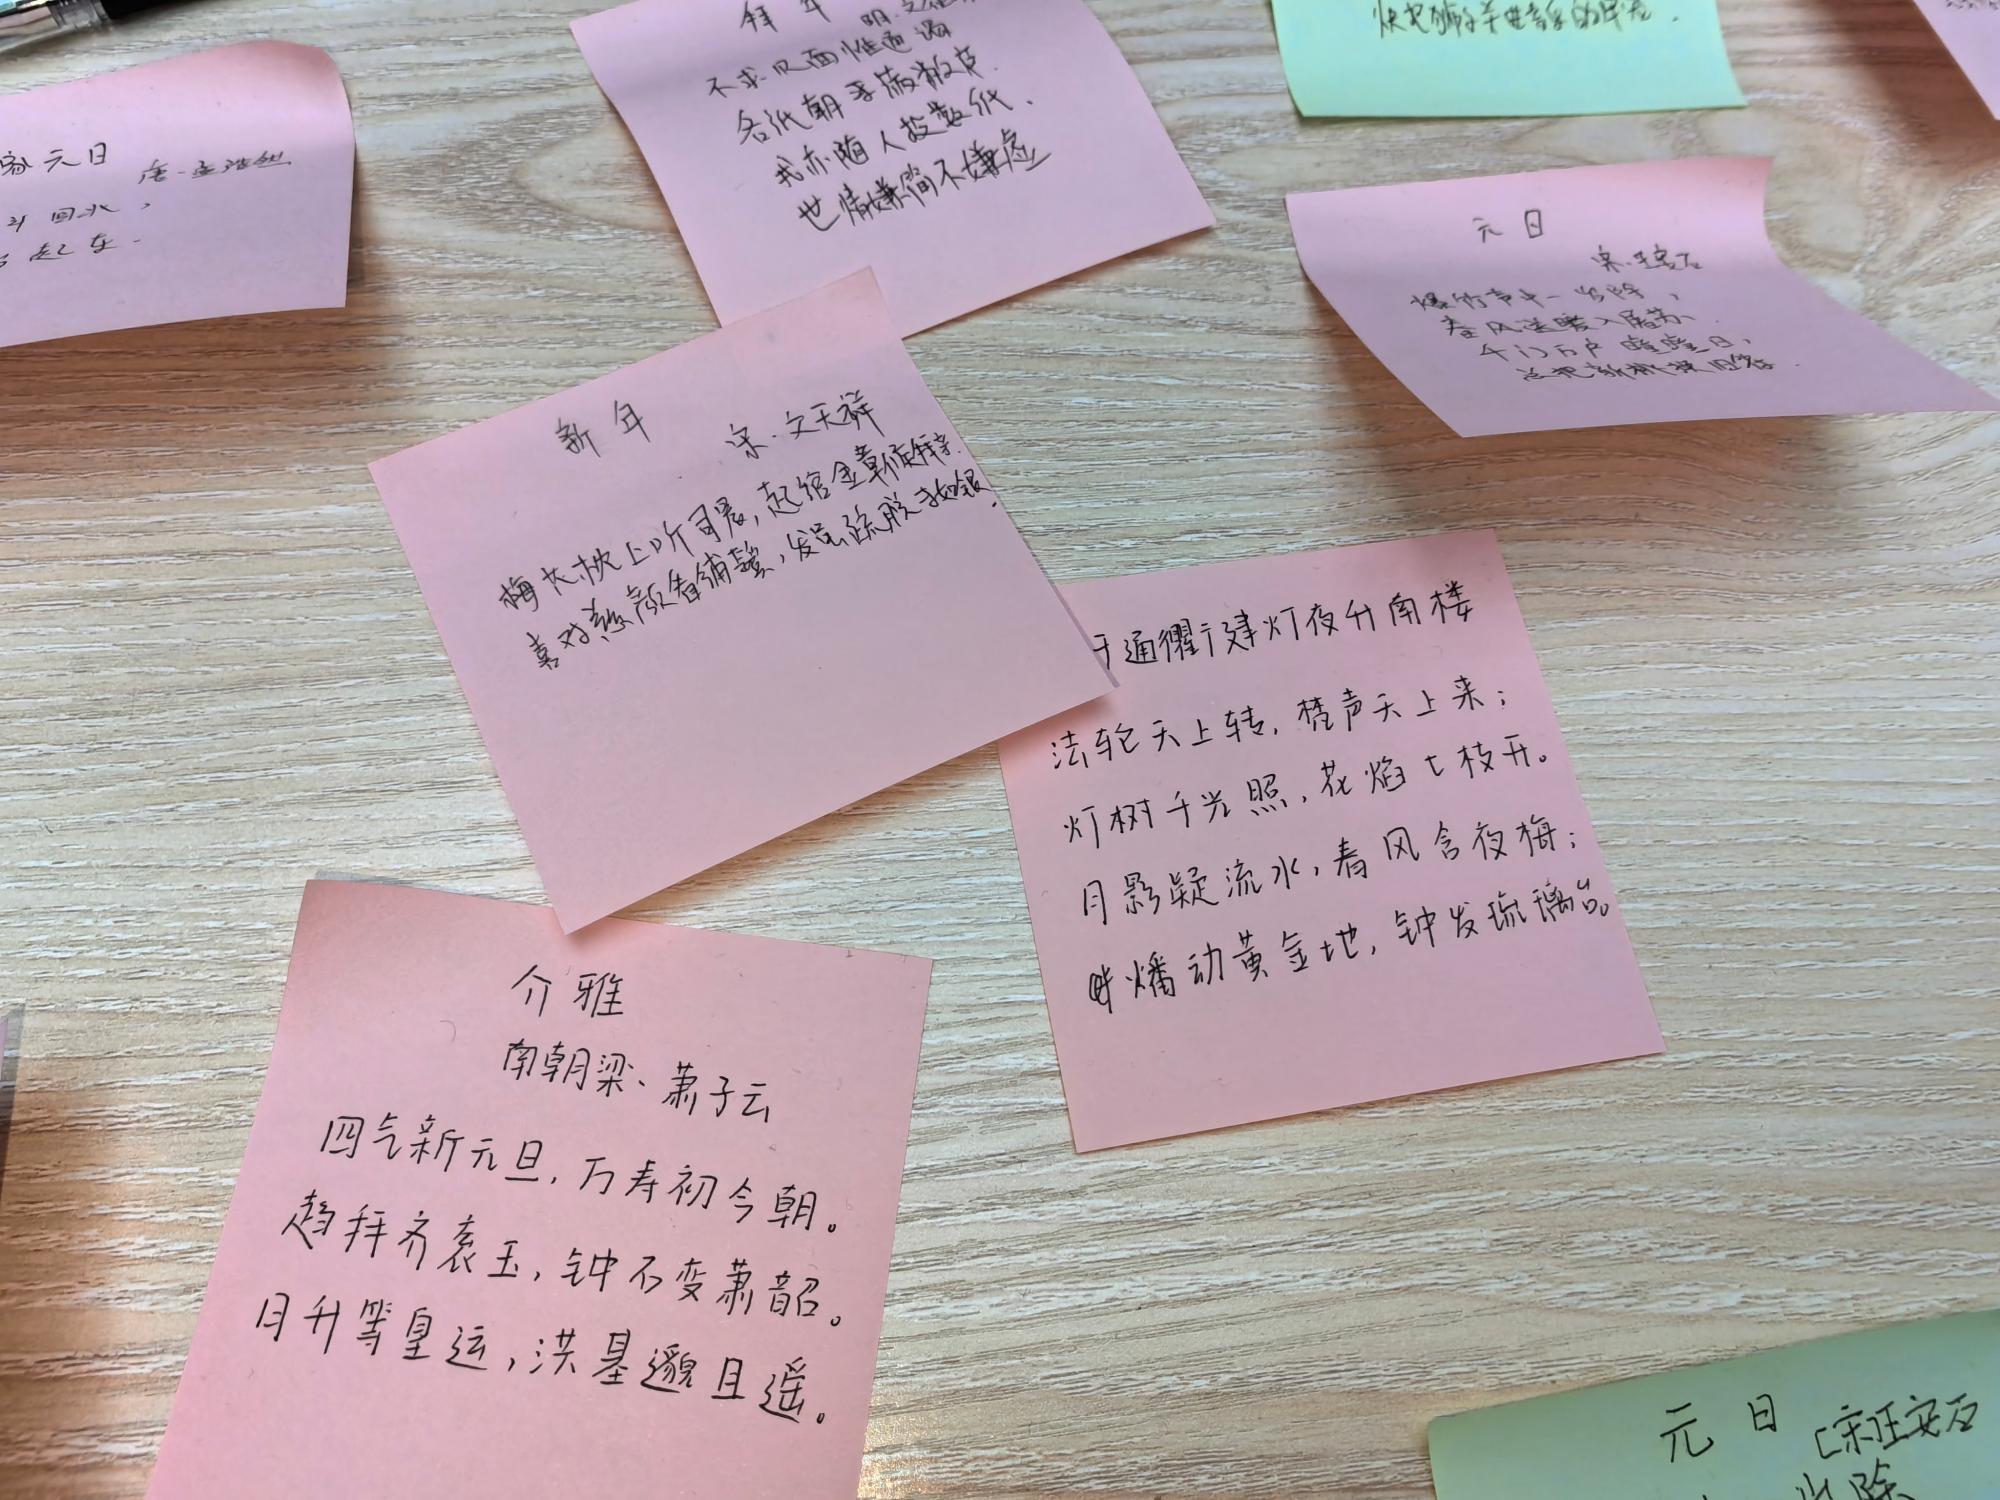 家元日
唐·孟浩然
斗回北，
起东．
拜年
不求见面惟通谒
名纸朝来满敝庐．
我亦随人投数纸．
世情嫌简不嫌虚
元日
宋·王安石
爆竹声中一岁除，
春风送暖入屠苏、
千门万户曈曈日，
总把新桃换旧符．
新年
宋·文天祥
梅花枕上听司晨，起绾金章候拜亲．
喜对慈颜看铺鬓，发虽疏脱未如银．
于通衢建灯夜升南楼
法轮天上转，梵声天上来；
灯树千光照，花焰七枝开。
月影疑流水，春风含夜梅；
燔动黄金地，钟发琉璃台。
介雅
南朝梁·萧子云
四气新元旦，万寿初今朝。
趋拜齐衮玉，钟石变萧韶。
日升等皇运，洪基邈且遥。
元日［宋］王安石
岁除